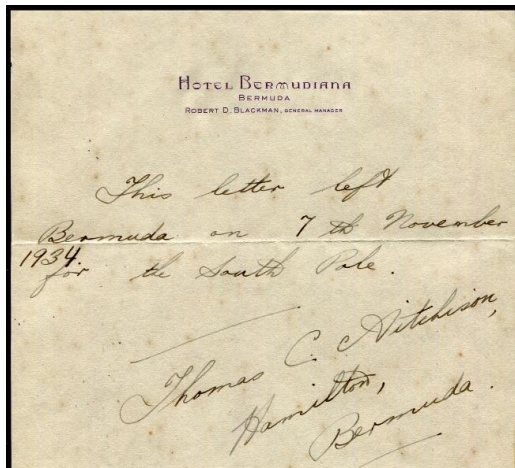 HOTEL BERMUDIANA
BERMUDA
ROBERT D. BLACKMAN, GENERAL MANAGER
This letter left
Bermuda on 7th November
1934.
for the South Pole.
Thomas C. Aitchison,
Hamilton,
Bermuda.